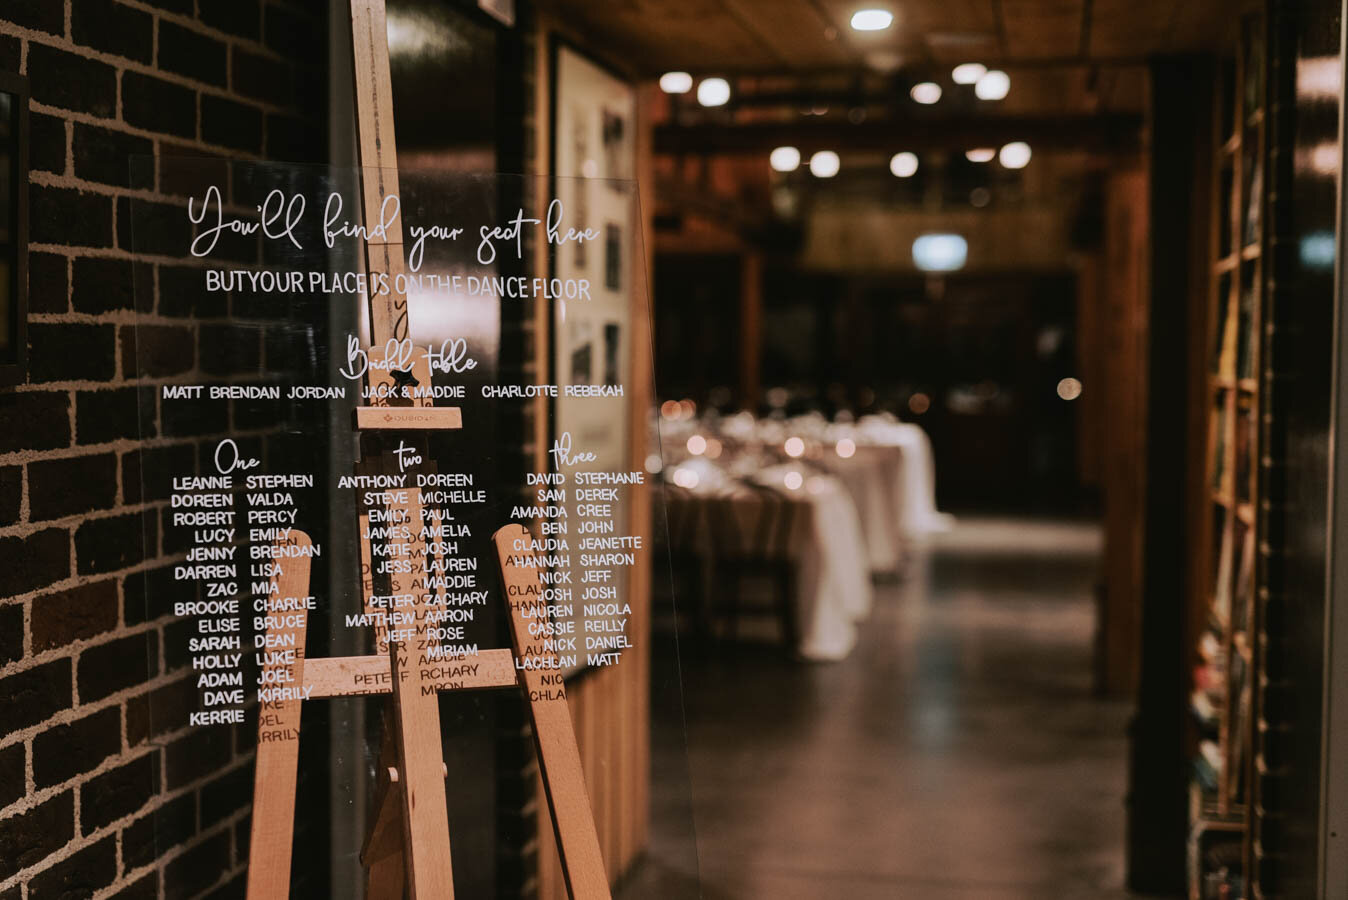 You'll find your seat here
BUTYOUR PLACE IS ON THE DANCE FLOOR
Bridal table
MATT BRENDAN JORDAN JACK & MADDIE CHARLOTTE REBEKAH
One
LEANNE STEPHEN
DOREEN VALDA
ROBERT PERCY
LUCY EMILY
JENNY BRENDAN
DARREN LISA
ZAC MIA
BROOKE CHARLIE
ELISE BRUCE
SARAH DEAN
HOLLY LUKE
ADAM JOEL
DAVE KIRRILY
KERRIE
two
ANTHONY DOREEN
STEVE MICHELLE
EMILY PAUL
JAMES AMELIA
KATIE JOSH
JESS LAUREN
MADDIE
PETER ZACHARY
MATTHEW AARON
JEFF ROSE
MIRIAM
three
DAVID STEPHANIE
SAM DEREK
AMANDA CREE
BEN JOHN
CLAUDIA JEANETTE
HANNAH SHARON
NICK JEFF
JOSH JOSH
LAUREN NICOLA
CASSIE REILLY
NICK DANIEL
LACHLAN MATT